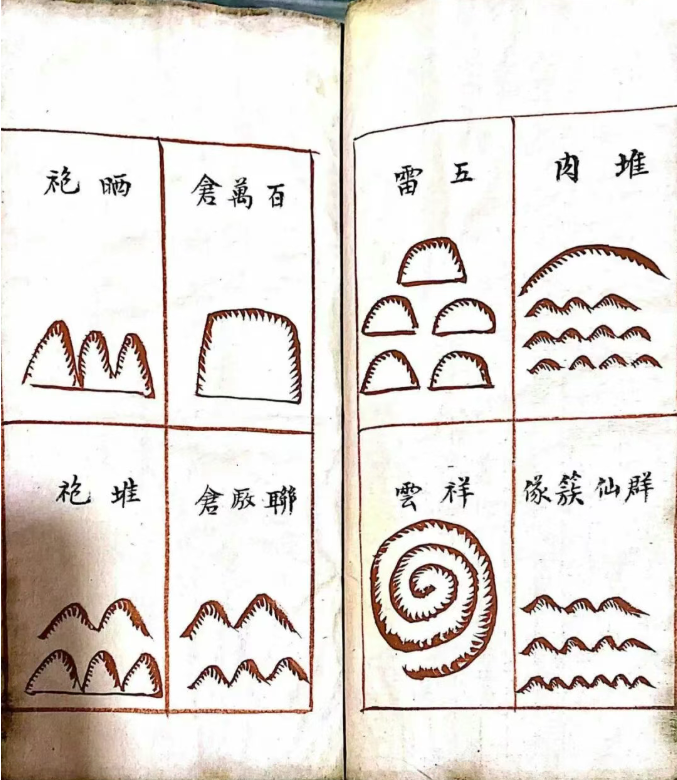 堆肉
五雷
群仙簇
祥雲
百萬倉
晒袍
聯厫倉
堆袍